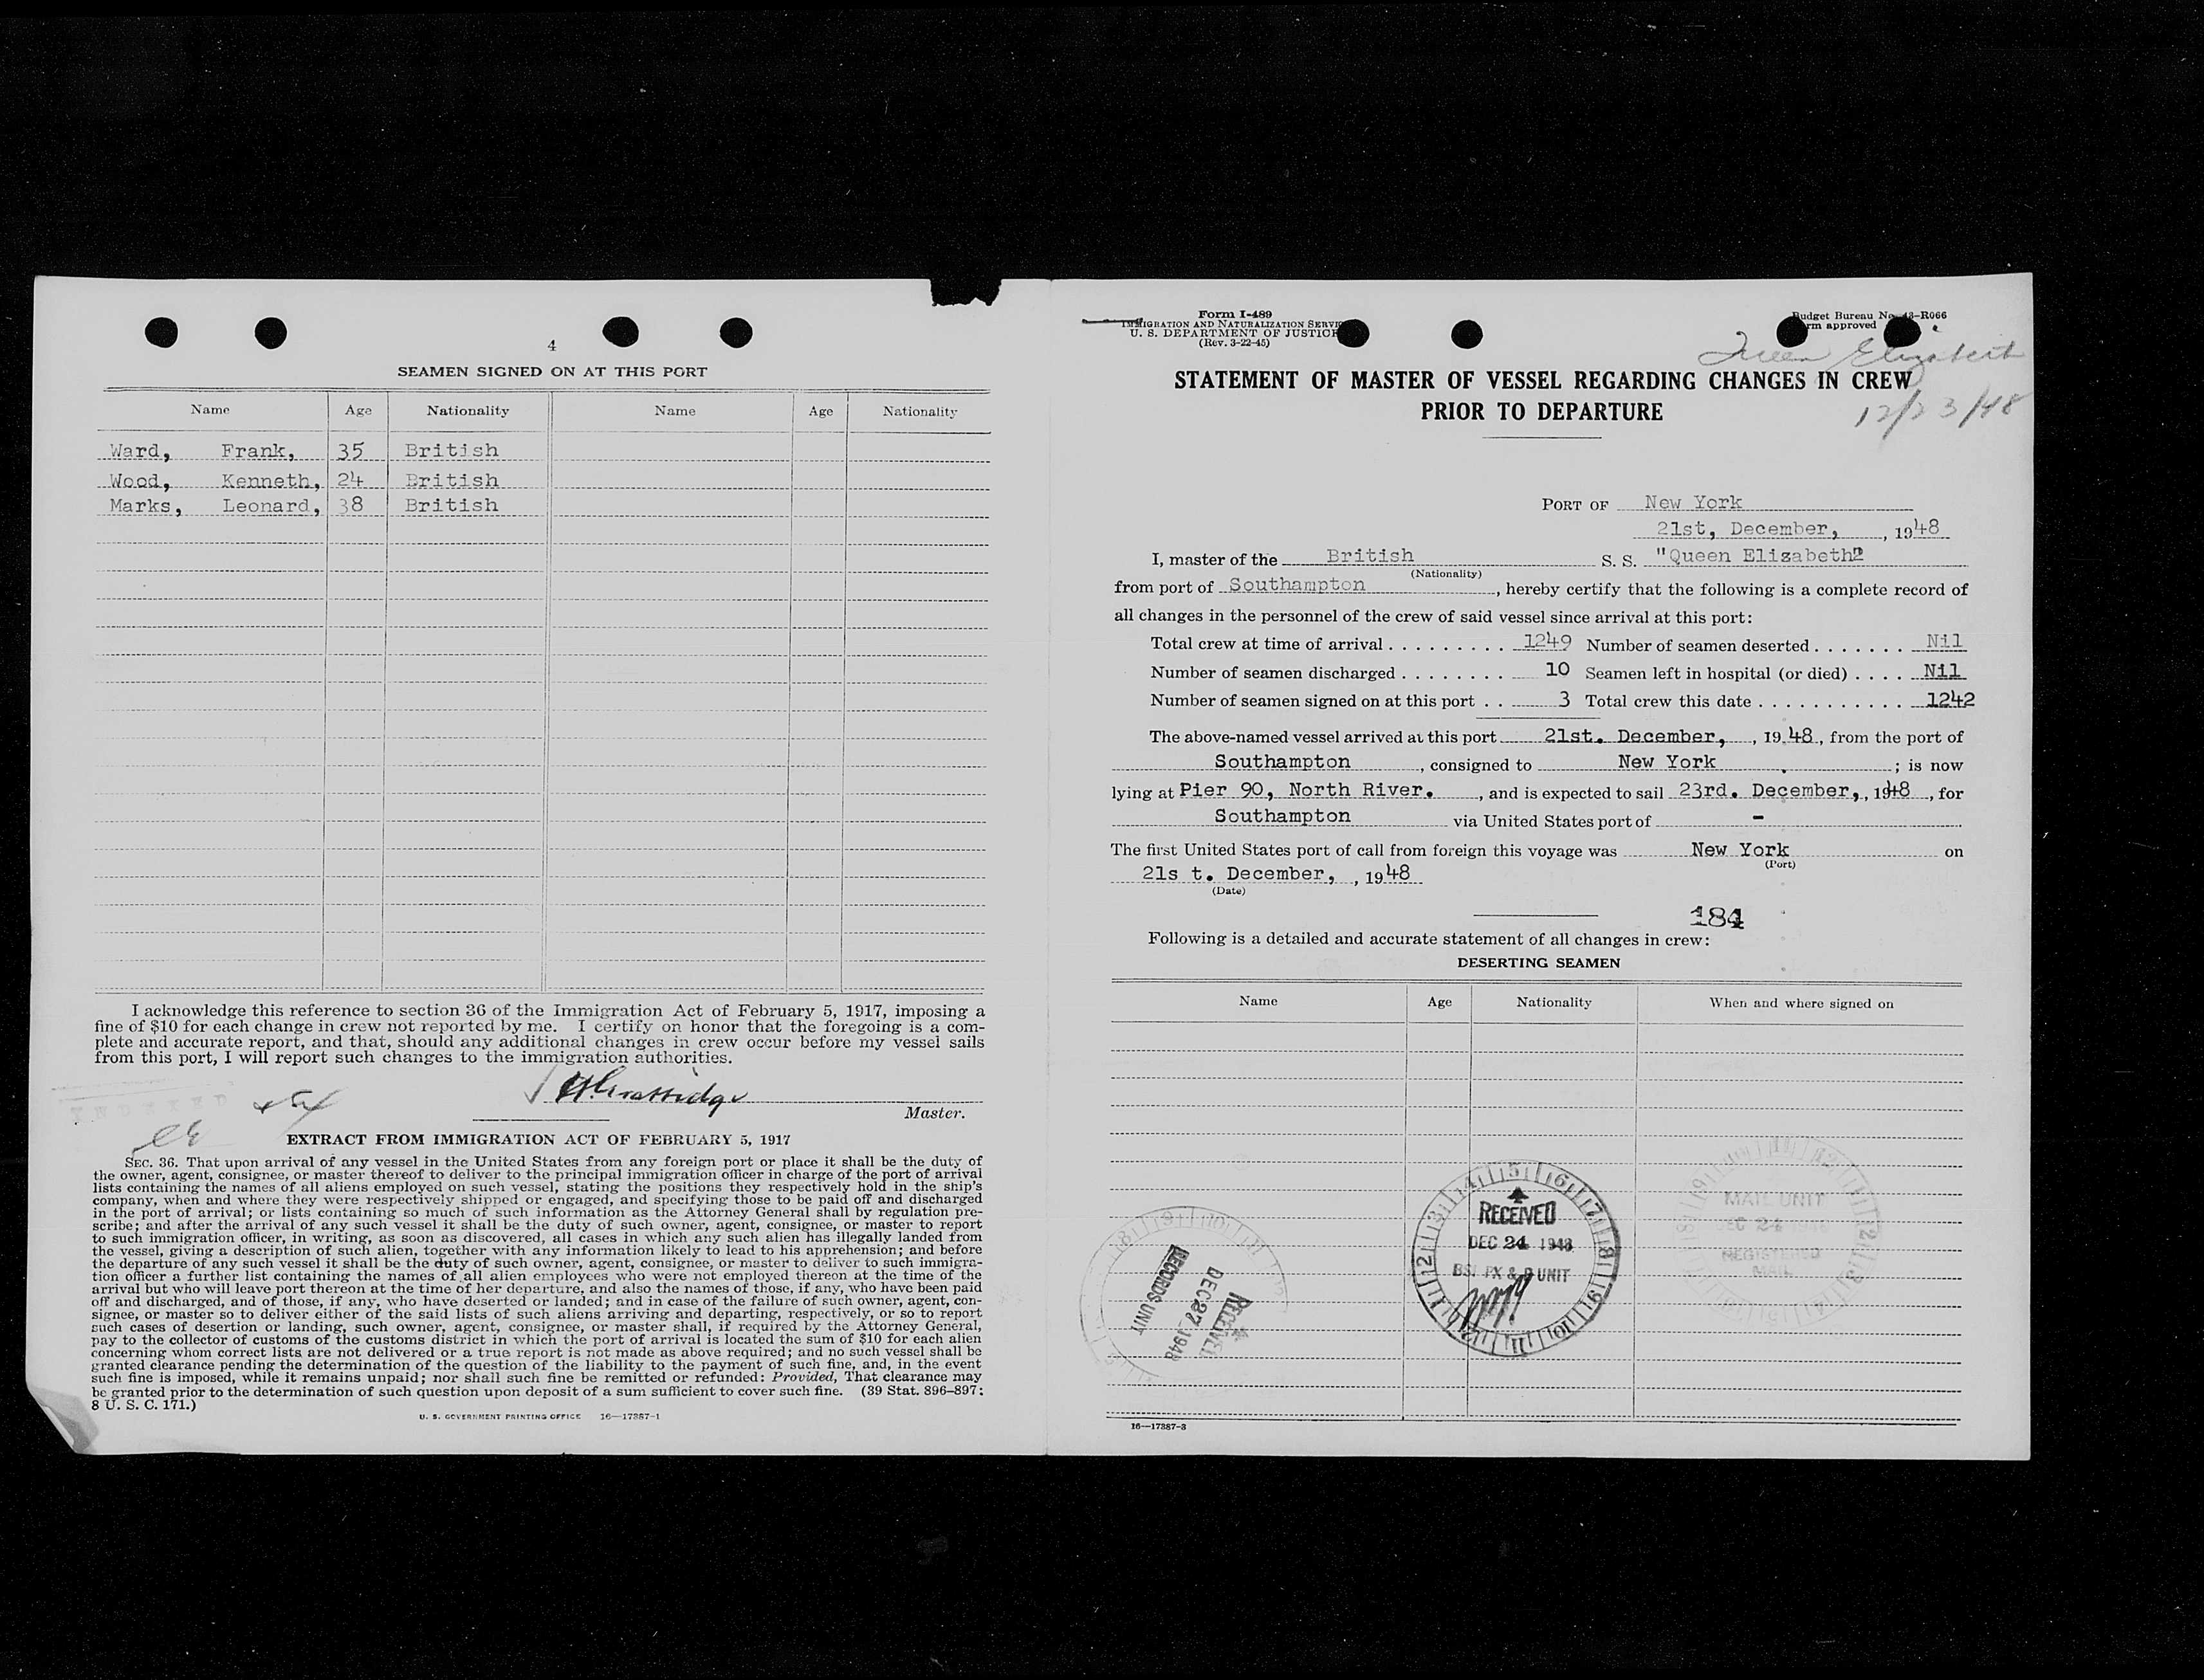 4
SEAMEN SIGNED ON AT THIS PORT
Name Age Nationality Name Age Nationality
Ward, Frank, 35 British
Wood, Kenneth, 24 British
Marks, Leonard, 38 British
I acknowledge this reference to section 36 of the Immigration Act of February 5, 1917, imposing a
fine of $10 for each change in crew not reported by me. I certify on honor that the foregoing is a com-
plete and accurate report, and that, should any additional changes in crew occur before my vessel sails
from this port, I will report such changes to the immigration authorities.
Master.
INDEXED
EXTRACT FROM IMMIGRATION ACT OF FEBRUARY 5, 1917
SEC. 36. That upon arrival of any vessel in the United States from any foreign port or place it shall be the duty of
the owner, agent, consignee, or master thereof to deliver to the principal immigration officer in charge of the port of arrival
lists containing the names of all aliens employed on such vessel, stating the positions they respectively hold in the ship's
company, when and where they were respectively shipped or engaged, and specifying those to be paid off and discharged
in the port of arrival; or lists containing so much of such information as the Attorney General shall by regulation pre-
scribe; and after the arrival of any such vessel it shall be the duty of such owner, agent, consignee, or master to report
to such immigration officer, in writing, as soon as discovered, all cases in which any such alien has illegally landed from
the vessel, giving a description of such alien, together with any information likely to lead to his apprehension; and before
the departure of any such vessel it shall be the duty of such owner, agent, consignee, or master to deliver to such immigra-
tion officer a further list containing the names of all alien employees who were not employed thereon at the time of the
arrival but who will leave port thereon at the time of her departure, and also the names of those, if any, who have been paid
off and discharged, and of those, if any, who have deserted or landed; and in case of the failure of such owner, agent, con-
signee, or master so to deliver either of the said lists of such aliens arriving and departing, respectively, or so to report
such cases of desertion or landing, such owner, agent, consignee, or master shall, if required by the Attorney General,
pay to the collector of customs of the customs district in which the port of arrival is located the sum of $10 for each alien
concerning whom correct lists are not delivered or a true report is not made as above required; and no such vessel shall be
granted clearance pending the determination of the question of the liability to the payment of such fine, and, in the event
such fine is imposed, while it remains unpaid; nor shall such fine be remitted or refunded: Provided, That clearance may
be granted prior to the determination of such question upon deposit of a sum sufficient to cover such fine. (39 Stat. 896-897;
8 U. S. C. 171.)
U. S. GOVERNMENT PRINTING OFFICE 16—17387-1
Form I-489
IMMIGRATION AND NATURALIZATION SERVI
U. S. DEPARTMENT OF JUSTICE
(Rev. 3-22-45)
Budget Bureau No. 43-R066
rm approved
Queen Elizabeth
12/23/48
STATEMENT OF MASTER OF VESSEL REGARDING CHANGES IN CREW
PRIOR TO DEPARTURE
PORT OF New York
21st, December, , 1948
I, master of the British S. S. "Queen Elizabeth"
(Nationality)
from port of Southampton , hereby certify that the following is a complete record of
all changes in the personnel of the crew of said vessel since arrival at this port:
Total crew at time of arrival . . . . . . . . . 1249 Number of seamen deserted . . . . . . . Nil
Number of seamen discharged . . . . . . . . 10 Seamen left in hospital (or died) . . . . Nil
Number of seamen signed on at this port . . 3 Total crew this date . . . . . . . . . . . 1242
The above-named vessel arrived at this port 21st. December, , 19 48 , from the port of
Southampton , consigned to New York ; is now
lying at Pier 90, North River. , and is expected to sail 23rd. December, , 1948 , for
Southampton via United States port of -
The first United States port of call from foreign this voyage was New York on
(Port)
21s t. December, , 1948
(Date)
184
Following is a detailed and accurate statement of all changes in crew:
DESERTING SEAMEN
Name Age Nationality When and where signed on
RECEIVED
DEC 27 1948
RECORDS UNIT
RECEIVED
DEC 24 1948
BSI PX & P UNIT
MAIL UNIT
DEC 24 1948
REGISTERED
MAIL
16—17387-3